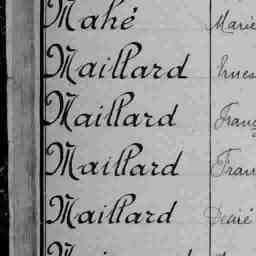 Mahé Marie
Maillard Ernes
Maillard Franç
Maillard Fran
Maillard Désiré